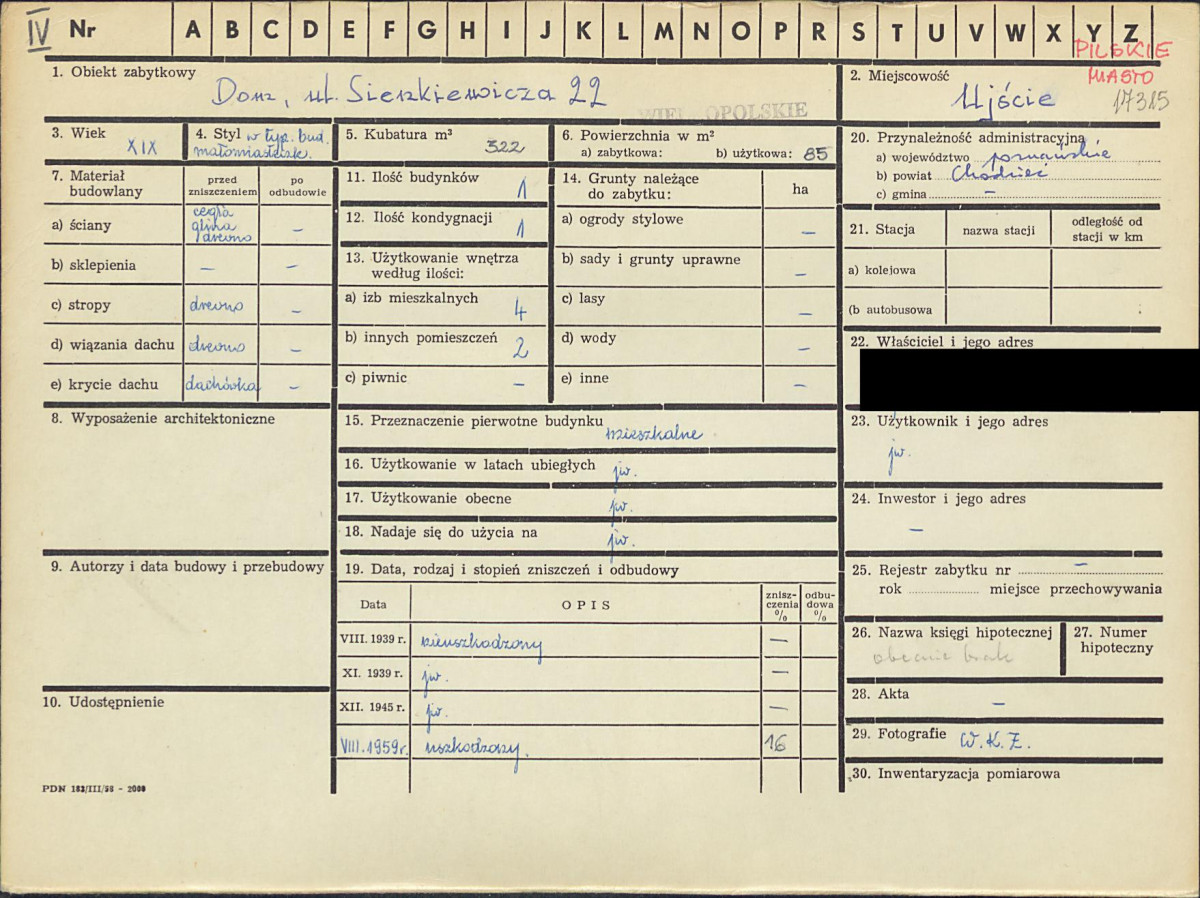 IV Nr A B C D E F G H I J K L M N O P R S T U V W X Y Z
PILSKIE
MIASTO
17315
1. Obiekt zabytkowy
Dom, ul. Sienkiewicza 22
WIELKOPOLSKIE
2. Miejscowość
Ujście
3. Wiek
XIX
4. Styl w typ. bud.
małomiasteczk.
5. Kubatura m³
322
6. Powierzchnia w m²
a) zabytkowa: b) użytkowa: 85
20. Przynależność administracyjna
a) województwo poznańskie
b) powiat Chodzież
c) gmina –
7. Materiał budowlany
przed zniszczeniem
po odbudowie
a) ściany
cegła
glina
drewno
–
b) sklepienia – –
c) stropy drewno –
d) wiązania dachu drewno –
e) krycie dachu dachówka –
8. Wyposażenie architektoniczne
9. Autorzy i data budowy i przebudowy
10. Udostępnienie
PDN 183/III/58 - 2000
11. Ilość budynków 1
12. Ilość kondygnacji 1
13. Użytkowanie wnętrza
według ilości:
a) izb mieszkalnych 4
b) innych pomieszczeń 2
c) piwnic –
14. Grunty należące
do zabytku:
ha
a) ogrody stylowe –
b) sady i grunty uprawne –
c) lasy –
d) wody –
e) inne –
15. Przeznaczenie pierwotne budynku mieszkalne
16. Użytkowanie w latach ubiegłych jw.
17. Użytkowanie obecne jw.
18. Nadaje się do użycia na jw.
19. Data, rodzaj i stopień zniszczeń i odbudowy
Data
OPIS
znisz-
czenia
%
odbu-
dowa
%
VIII. 1939 r. nieuszkodzony –
XI. 1939 r. jw. –
XII. 1945 r. jw. –
VIII. 1959 r. uszkodzony. 16
21. Stacja
nazwa stacji
odległość od
stacji w km
a) kolejowa
(b autobusowa
22. Właściciel i jego adres
23. Użytkownik i jego adres
jw.
24. Inwestor i jego adres
–
25. Rejestr zabytku nr –
rok miejsce przechowywania
26. Nazwa księgi hipotecznej
obecnie brak
27. Numer
hipoteczny
28. Akta
–
29. Fotografie W.K.Z.
30. Inwentaryzacja pomiarowa